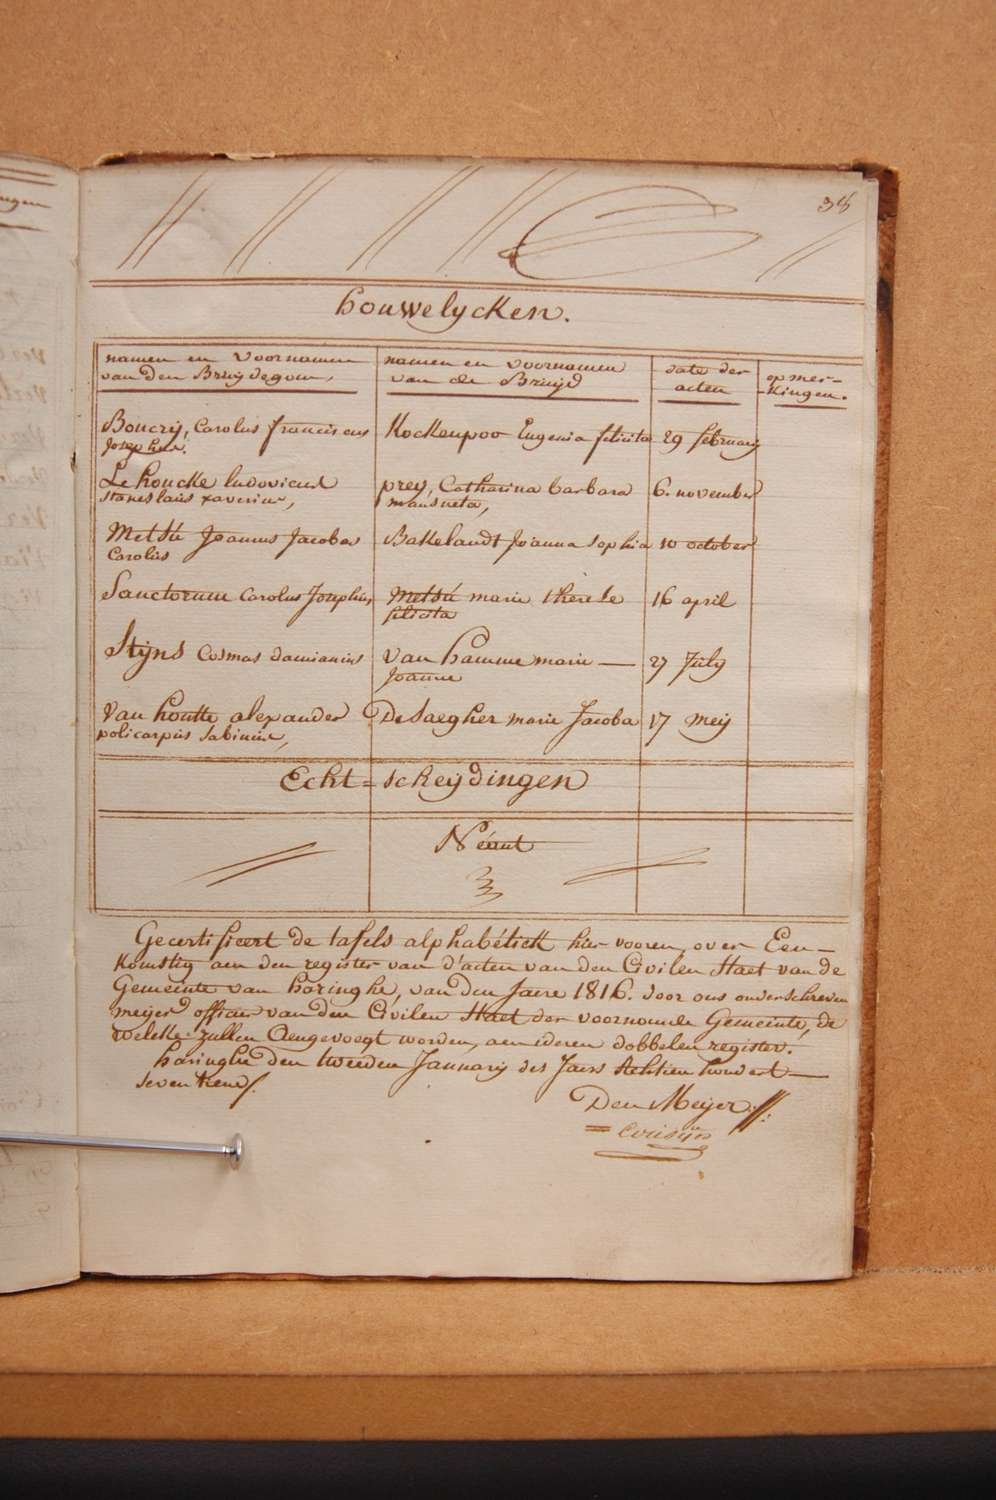 38
houwelycken.
namen en voornamen van den Bruijdegom, namen en voornamen van de Bruijd date der acten opmer-kingen.
Boucrij, Carolus franciscus Josephus. Kockenpoo Eugenia felicita 29 february
Le houcke ludovicus stanislaus xaverius, prey, Catharina barbara mansueta, 6. november
Metsú Joannes Jacobus Carolus Bakelandt Joanna Sophia 10 october
Sanctorum Carolus Josephus, Metsú marie therese felicita 16 april
Stijns Cosmas damianus van hamme marie — Joanne 27 July
Van houtte alexander policarpus Sabinus, De Saegher marie Jacoba 17 meij
Echt=scheydingen
Néant
Gecertificeert de tafels alphabétick hier vooren, over Een-
komstig aen den register van d'acten van den Civilen Staet van de
Gemeinte van haringhe, van den Jaere 1816. door ons onderschreven
meijer officier van den Civilen Staet der voornoemde Gemeinte, de
welcke zullen Aengevoegt worden, aen ideren dobbelen register.
haringhe den tweeden Januarij des Jaers Achtien hondert —
seventiene/.
Den Meijer